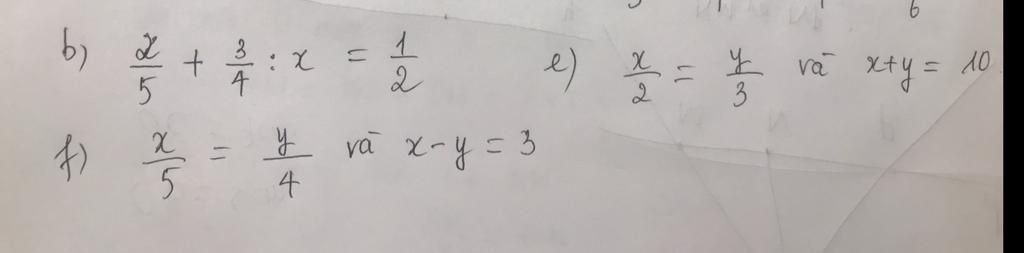 6
b) 2/5 + 3/4 : x = 1/2 e) x/2 = y/3 và x+y = 10
f) x/5 = y/4 và x - y = 3